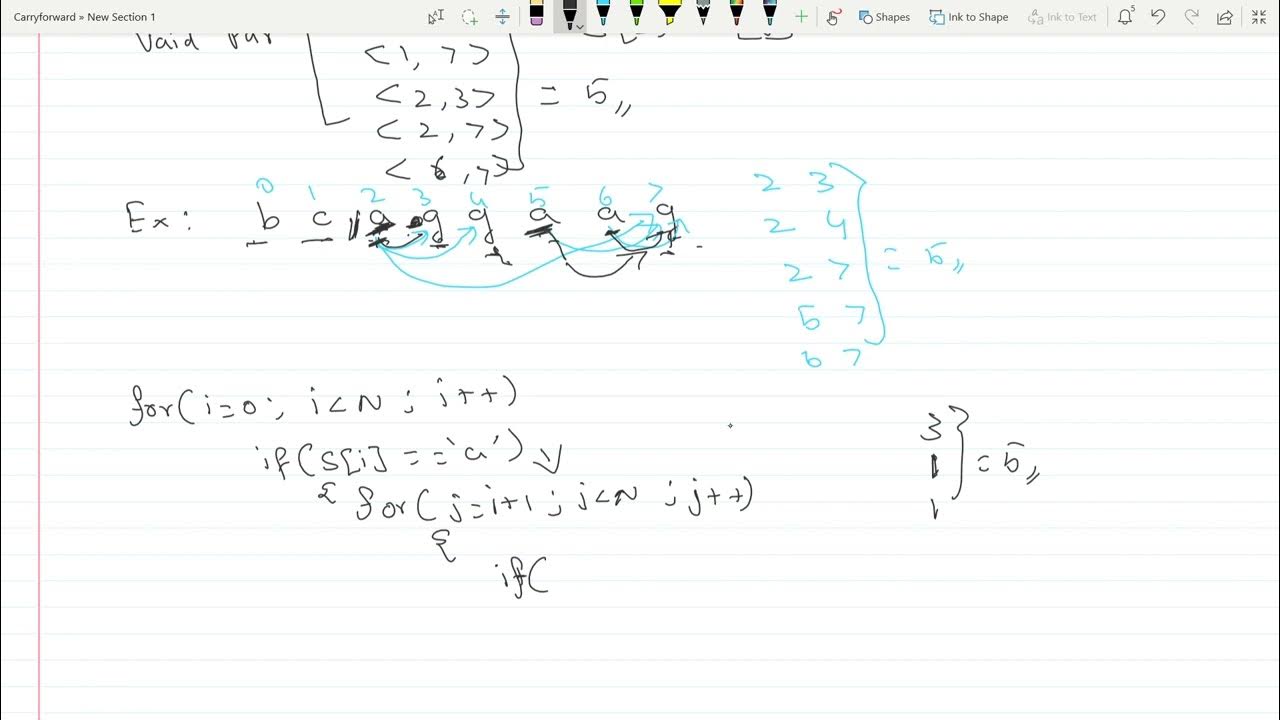 Carryforward » New Section 1
Shapes Ink to Shape Ink to Text 5
<1, 7>
<2, 3> = 5,,
<2, 7>
<6, 7>
0 1 2 3 4 5 6 7
Ex: b c a g g a a g
2 3
2 4
2 7 = 5,,
5 7
6 7
for(i=0; i<N; i++)
if(S[i] == 'a')
{ for(j=i+1; j<N; j++)
{
if(
3
1 = 5,,
1